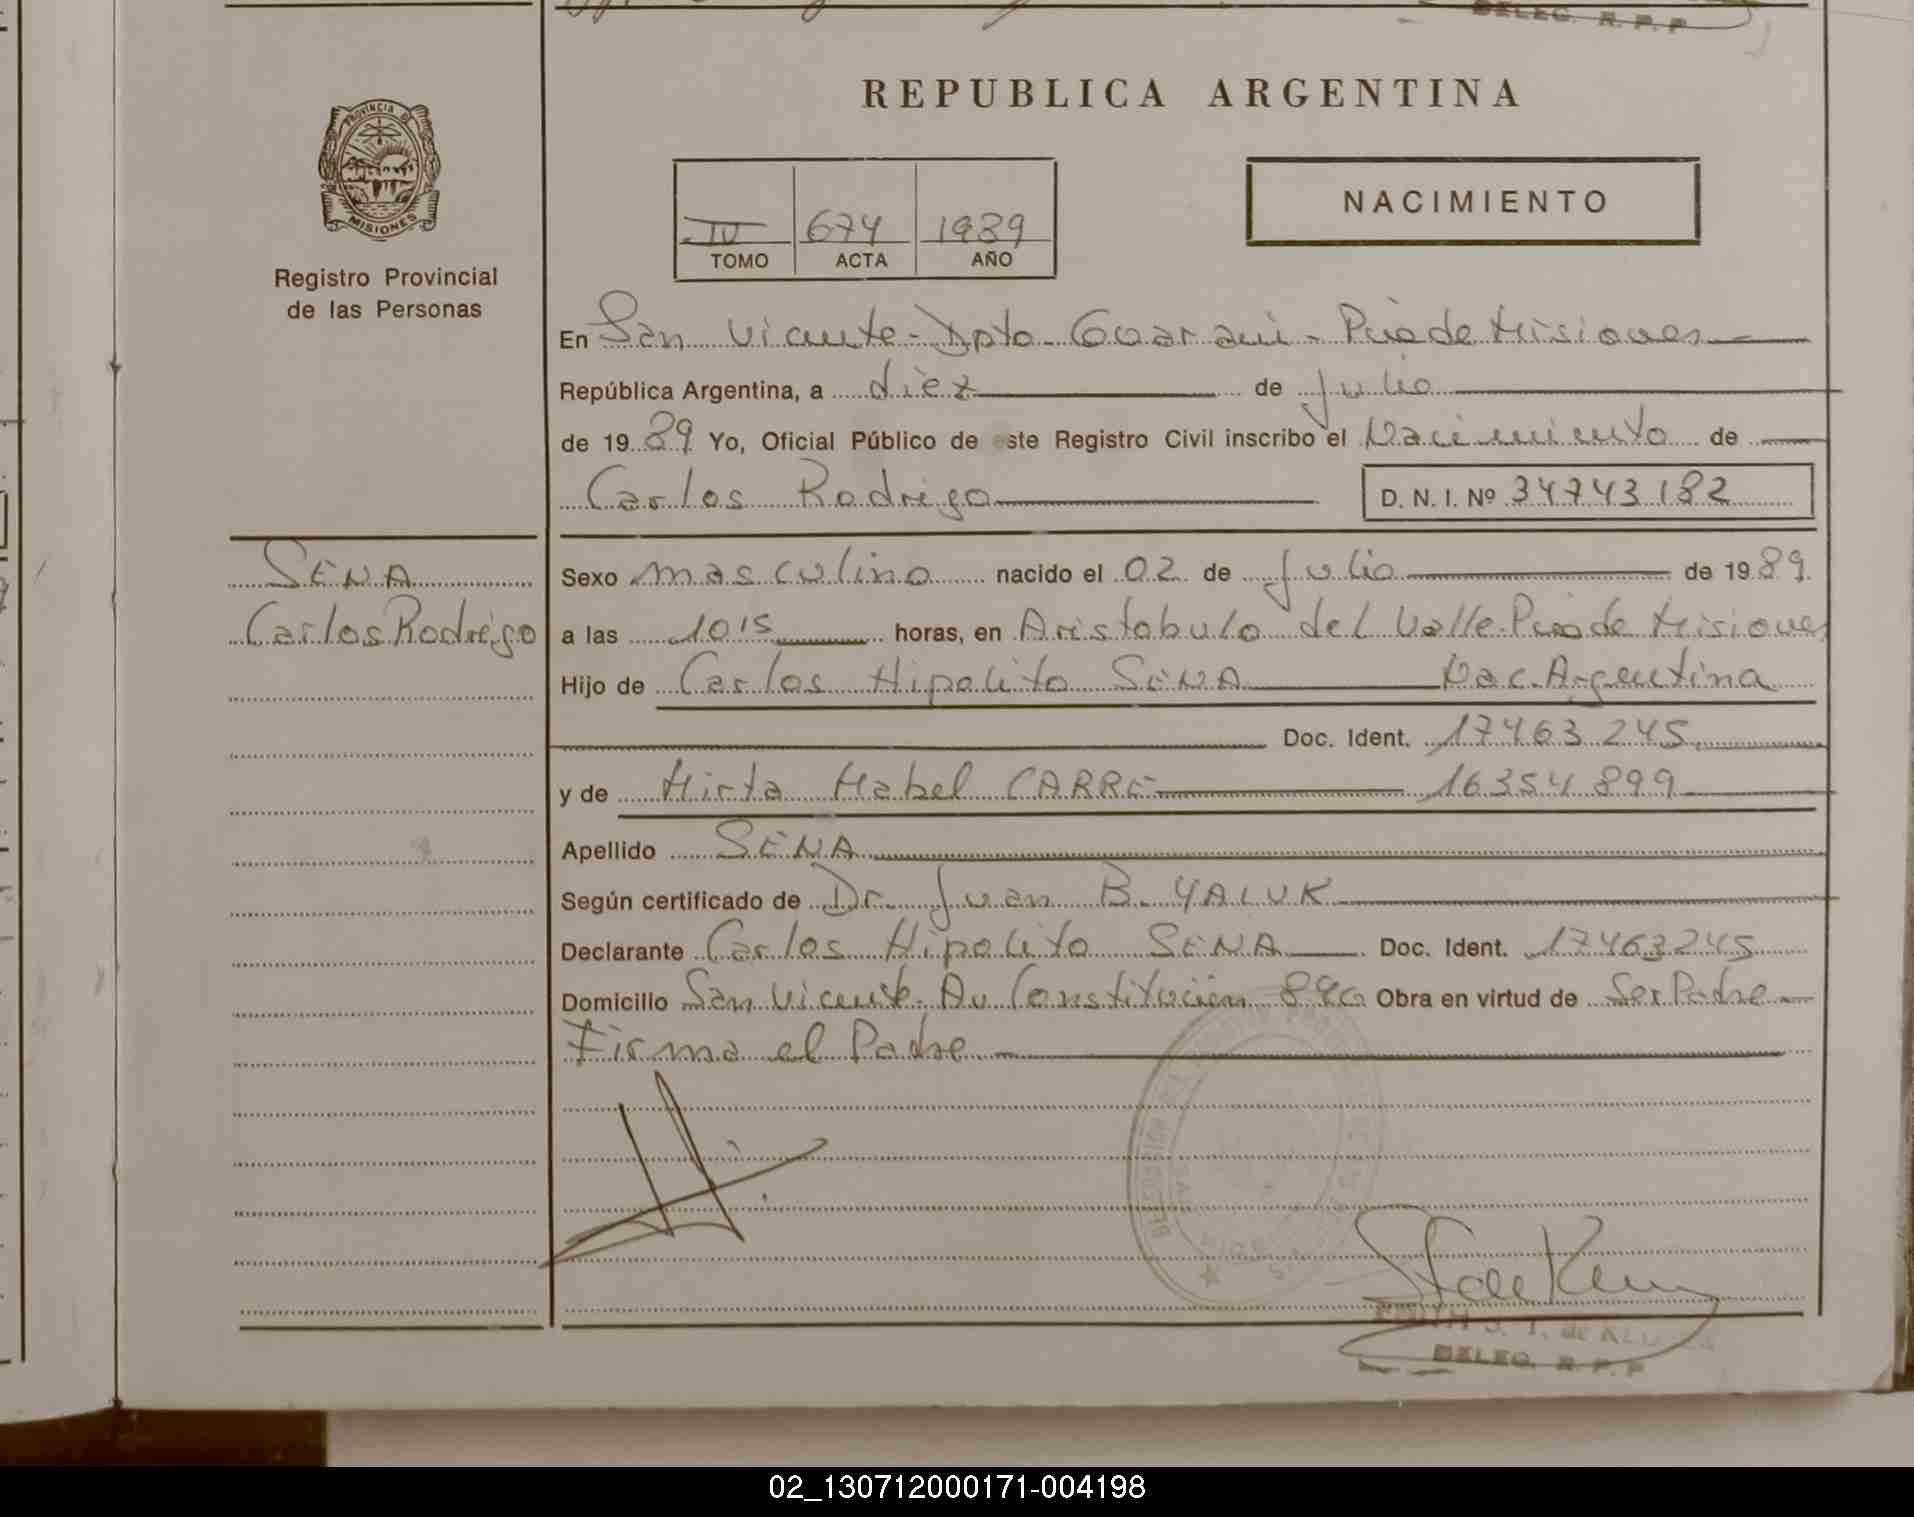 DELEG. R. P. P
REPUBLICA ARGENTINA
PROVINCIA DE
MISIONES
Registro Provincial
de las Personas
IV 674 1989
TOMO ACTA AÑO
NACIMIENTO
En San Vicente - Dpto - Guarani - Pcia de Misiones
República Argentina, a diez de Julio
de 19 89 Yo, Oficial Público de este Registro Civil inscribo el Nacimiento de
Carlos Rodrigo D. N. I. Nº 34743182
SENA
Carlos Rodrigo
Sexo masculino nacido el 02 de Julio de 19 89
a las 10 15 horas, en Aristobulo del Valle - Pcia de Misiones
Hijo de Carlos Hipolito SENA Nac. Argentina
Doc. Ident. 17463245
y de Mirta Mabel CARRE 16354899
Apellido SENA
Según certificado de Dr. Juan B. YALUK
Declarante Carlos Hipolito SENA Doc. Ident. 17463245
Domicilio San Vicente - Av Constitución Obra en virtud de Ser Padre
Firma el Padre
EDITH S. T. de
DELEG. R. P. P
02_130712000171-004198